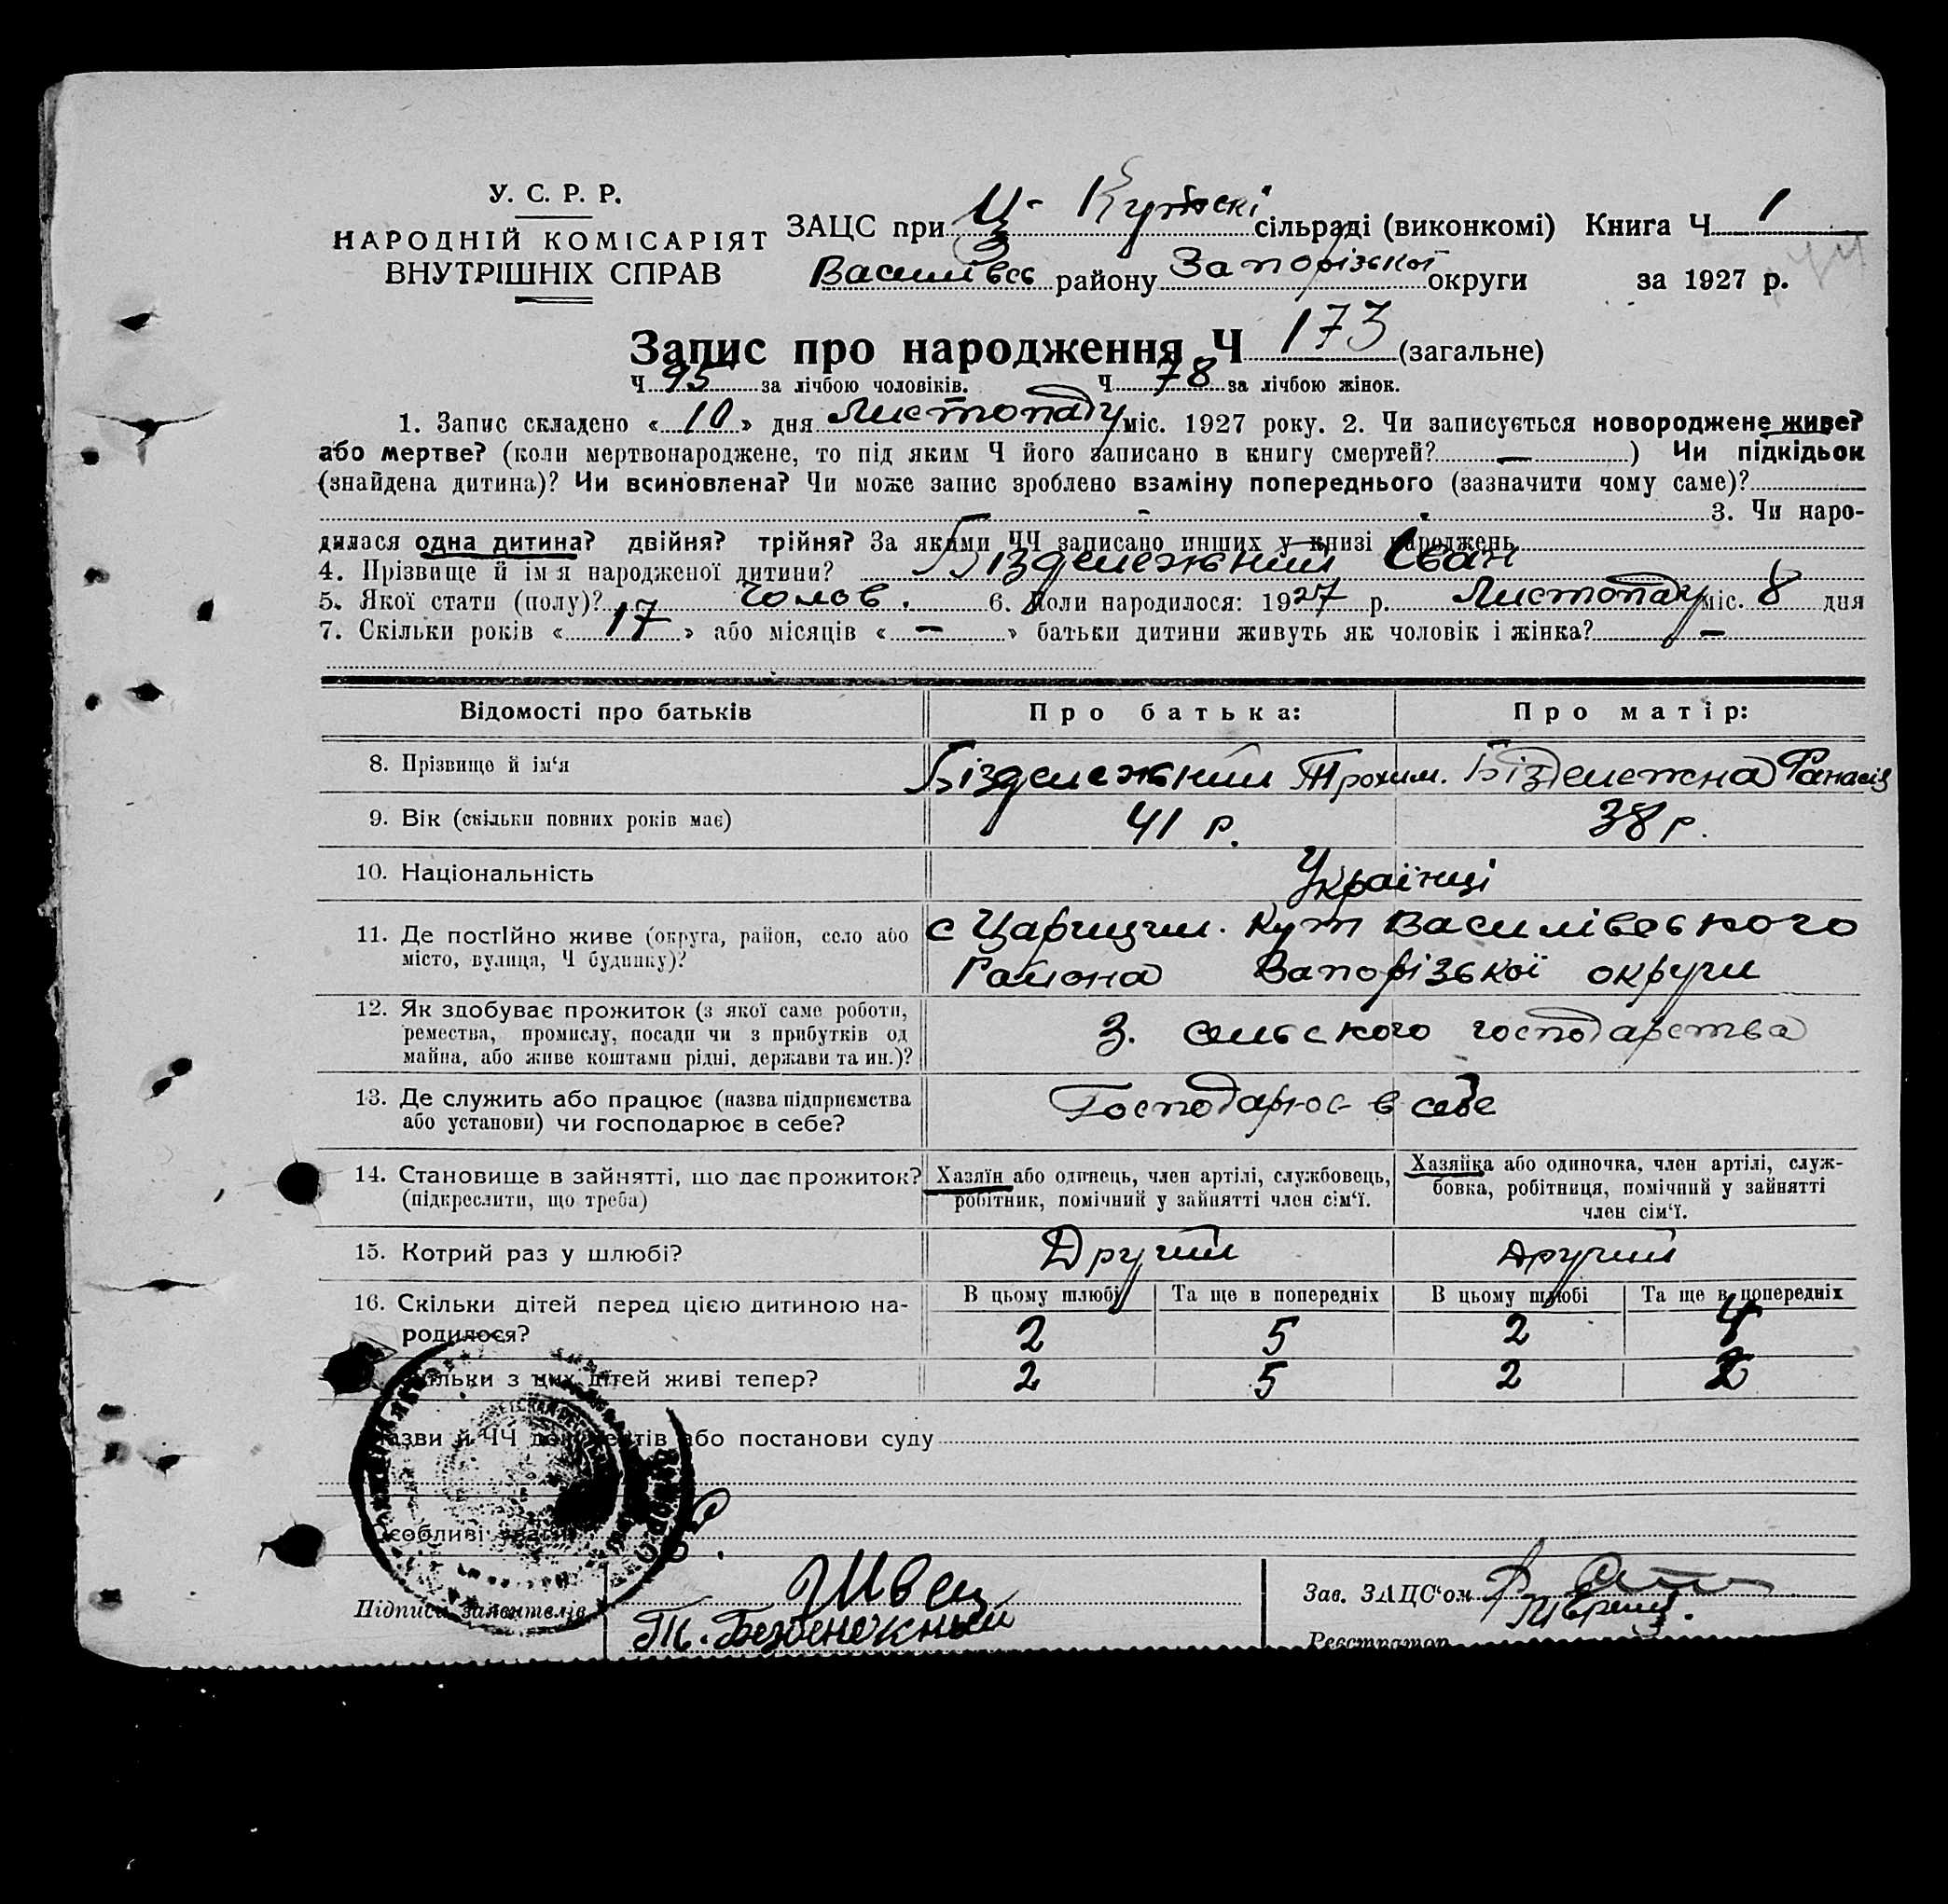 У. С. Р. Р.
НАРОДНІЙ КОМІСАРІЯТ
ВНУТРІШНІХ СПРАВ
ЗАЦС при Ц- Кутскі сільраді (виконкомі) Книга Ч 1
Василівсь району Запорізької округи за 1927 р.
Запис про народження Ч 173 (загальне)
Ч 95 за лічбою чоловіків. Ч 78 за лічбою жінок.
1. Запис складено « 10 » дня Листопаду міс. 1927 року. 2. Чи записується новороджене живе?
або мертве? (коли мертвонароджене, то під яким Ч його записано в книгу смертей? — ) Чи підкідьок
(знайдена дитина)? Чи всиновлена? Чи може запис зроблено взаміну попереднього (зазначити чому саме)?
3. Чи наро-
дилася одна дитина? двійня? трійня? За якими ЧЧ записано инших у книзі народжень
4. Прізвище й ім'я народженої дитини? Бізденежний Іван
5. Якої стати (полу)? Чолов. 6. Коли народилося: 1927 р. Листопаду міс. 8 дня
7. Скільки років « 17 » або місяців « — » батьки дитини живуть як чоловік і жінка? —
Відомості про батьків Про батька: Про матір:
8. Прізвище й ім'я Бізденежний Трохим. Бізденежна Фанасія
9. Вік (скільки повних років має) 41 р. 38 р.
10. Національність Українці
11. Де постійно живе (округа, район, село або с Царицин. Кут Василівського
місто, вулиця, Ч будинку)? Района Запорізької округи
12. Як здобуває прожиток (з якої саме роботи,
ремества, промислу, посади чи з прибутків од З. сельского господарства
майна, або живе коштами рідні, держави та ин.)?
13. Де служить або працює (назва підприємства Господарює в себе
або установи) чи господарює в себе?
14. Становище в зайнятті, що дає прожиток? Хазяїн або одинець, член артілі, службовець, Хазяйка або одиночка, член артілі, служ-
(підкреслити, що треба) робітник, помічний у зайнятті член сім'ї. бовка, робітниця, помічний у зайнятті
член сім'ї.
15. Котрий раз у шлюбі? Другий Другий
16. Скільки дітей перед цією дитиною на- В цьому шлюбі Та ще в попередніх В цьому шлюбі Та ще в попередніх
родилося? 2 5 2 4
з них дітей живі тепер? 2 5 2 2
й ЧЧ документів або постанови суду
Особливі
Підписи заявителів Швец Зав. ЗАЦС'ом
Т. Безденежный
Реєстратор